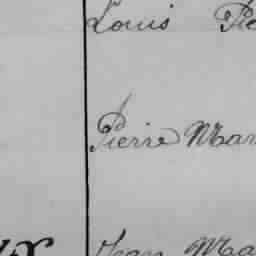 Louis Pie
Pierre Mar
Jean Ma